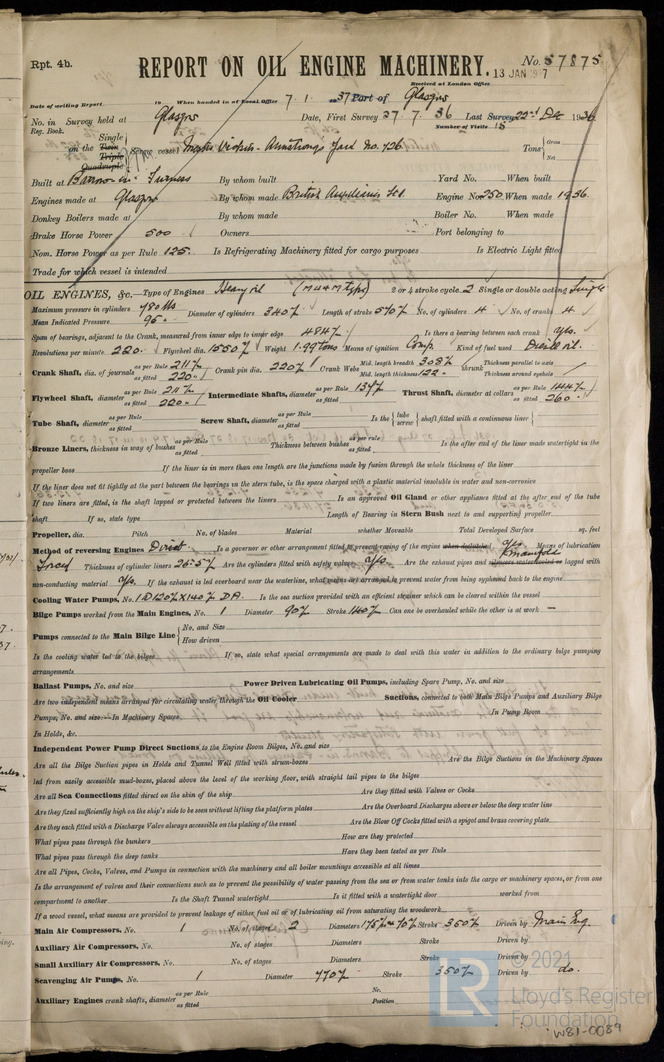 Rpt. 4b.
REPORT ON OIL ENGINE MACHINERY.
No. 57875
13 JAN 1937
Received at London Office
Date of writing Report 19 When handed in at Local Office 7. 1. 1937 Port of Glasgow
No. in Survey held at Glasgow Date, First Survey 27. 7. 36 Last Survey 22nd Dec 1936
Reg. Book. Number of Visits 15
on the Single Twin Triple Quadruple Screw vessel Messrs Vickers-Armstrongs Yard No. 726 Tons Gross Net
Built at Barrow-in-Furness By whom built Yard No. When built
Engines made at Glasgow By whom made British Auxiliaries Ltd Engine No. 250 When made 1936.
Donkey Boilers made at By whom made Boiler No. When made
Brake Horse Power 500 Owners Port belonging to
Nom. Horse Power as per Rule 125. Is Refrigerating Machinery fitted for cargo purposes Is Electric Light fitted
Trade for which vessel is intended
OIL ENGINES, &c.—Type of Engines Heavy oil (M.&M. type) 2 or 4 stroke cycle 2 Single or double acting Single
Maximum pressure in cylinders 780 lbs Diameter of cylinders 340 Length of stroke 570 No. of cylinders 4 No. of cranks 4
Mean Indicated Pressure 95
Span of bearings, adjacent to the Crank, measured from inner edge to inner edge 484 Is there a bearing between each crank yes.
Revolutions per minute 220. Flywheel dia. 1550 Weight 1.99 tons Means of ignition Comp. Kind of fuel used Diesel oil.
Crank Shaft, dia. of journals as per Rule 211 as fitted 220 Crank pin dia. 220 Crank Webs Mid. length breadth 308 Mid. length thickness 122 shrunk Thickness parallel to axis Thickness around eyehole
Flywheel Shaft, diameter as per Rule 211 as fitted 220 Intermediate Shafts, diameter as per Rule 134 as fitted Thrust Shaft, diameter at collars as per Rule 144 as fitted 260
Tube Shaft, diameter as per Rule as fitted Screw Shaft, diameter as per Rule as fitted Is the tube screw shaft fitted with a continuous liner
Bronze Liners, thickness in way of bushes as per Rule as fitted Thickness between bushes as per rule as fitted Is the after end of the liner made watertight in the
propeller boss If the liner is in more than one length are the junctions made by fusion through the whole thickness of the liner
If the liner does not fit tightly at the part between the bearings in the stern tube, is the space charged with a plastic material insoluble in water and non-corrosive
If two liners are fitted, is the shaft lapped or protected between the liners Is an approved Oil Gland or other appliance fitted at the after end of the tube
shaft If so, state type Length of Bearing in Stern Bush next to and supporting propeller
Propeller, dia. Pitch No. of blades Material whether Moveable Total Developed Surface sq. feet
Method of reversing Engines Direct Is a governor or other arrangement fitted to prevent racing of the engine when declutched yes. Means of lubrication
Forced Thickness of cylinder liners 26.5 Are the cylinders fitted with safety valves yes. Are the exhaust pipes and manifold silencers water cooled or lagged with
non-conducting material yes. If the exhaust is led overboard near the waterline, what means are arranged to prevent water from being syphoned back to the engine
Cooling Water Pumps, No. 1 @ 120 X 140 D.A. Is the sea suction provided with an efficient strainer which can be cleared within the vessel
Bilge Pumps worked from the Main Engines, No. 1 Diameter 90 Stroke 140 Can one be overhauled while the other is at work —
Pumps connected to the Main Bilge Line No. and Size How driven
Is the cooling water led to the bilges If so, state what special arrangements are made to deal with this water in addition to the ordinary bilge pumping
arrangements
Ballast Pumps, No. and size Power Driven Lubricating Oil Pumps, including Spare Pump, No. and size
Are two independent means arranged for circulating water through the Oil Cooler Suctions, connected to both Main Bilge Pumps and Auxiliary Bilge
Pumps, No. and size:—In Machinery Spaces In Pump Room
In Holds, &c.
Independent Power Pump Direct Suctions to the Engine Room Bilges, No. and size
Are all the Bilge Suction pipes in Holds and Tunnel Well fitted with strum-boxes Are the Bilge Suctions in the Machinery Spaces
led from easily accessible mud-boxes, placed above the level of the working floor, with straight tail pipes to the bilges
Are all Sea Connections fitted direct on the skin of the ship Are they fitted with Valves or Cocks
Are they fixed sufficiently high on the ship's side to be seen without lifting the platform plates Are the Overboard Discharges above or below the deep water line
Are they each fitted with a Discharge Valve always accessible on the plating of the vessel Are the Blow Off Cocks fitted with a spigot and brass covering plate
What pipes pass through the bunkers How are they protected
What pipes pass through the deep tanks Have they been tested as per Rule
Are all Pipes, Cocks, Valves, and Pumps in connection with the machinery and all boiler mountings accessible at all times
Is the arrangement of valves and their connections such as to prevent the possibility of water passing from the sea or from water tanks into the cargo or machinery spaces, or from one
compartment to another Is the Shaft Tunnel watertight Is it fitted with a watertight door worked from
If a wood vessel, what means are provided to prevent leakage of either fuel oil or of lubricating oil from saturating the woodwork
Main Air Compressors, No. 1 No. of stages 2 Diameters 175 70 Stroke 350 Driven by Main Eng.
Auxiliary Air Compressors, No. No. of stages Diameters Stroke Driven by
Small Auxiliary Air Compressors, No. No. of stages Diameters Stroke Driven by
Scavenging Air Pumps, No. 1 Diameter 770 Stroke 350 Driven by do.
Auxiliary Engines crank shafts, diameter as per Rule as fitted No. Position
© 2021
LR
Lloyd's Register
Foundation
W81-0089